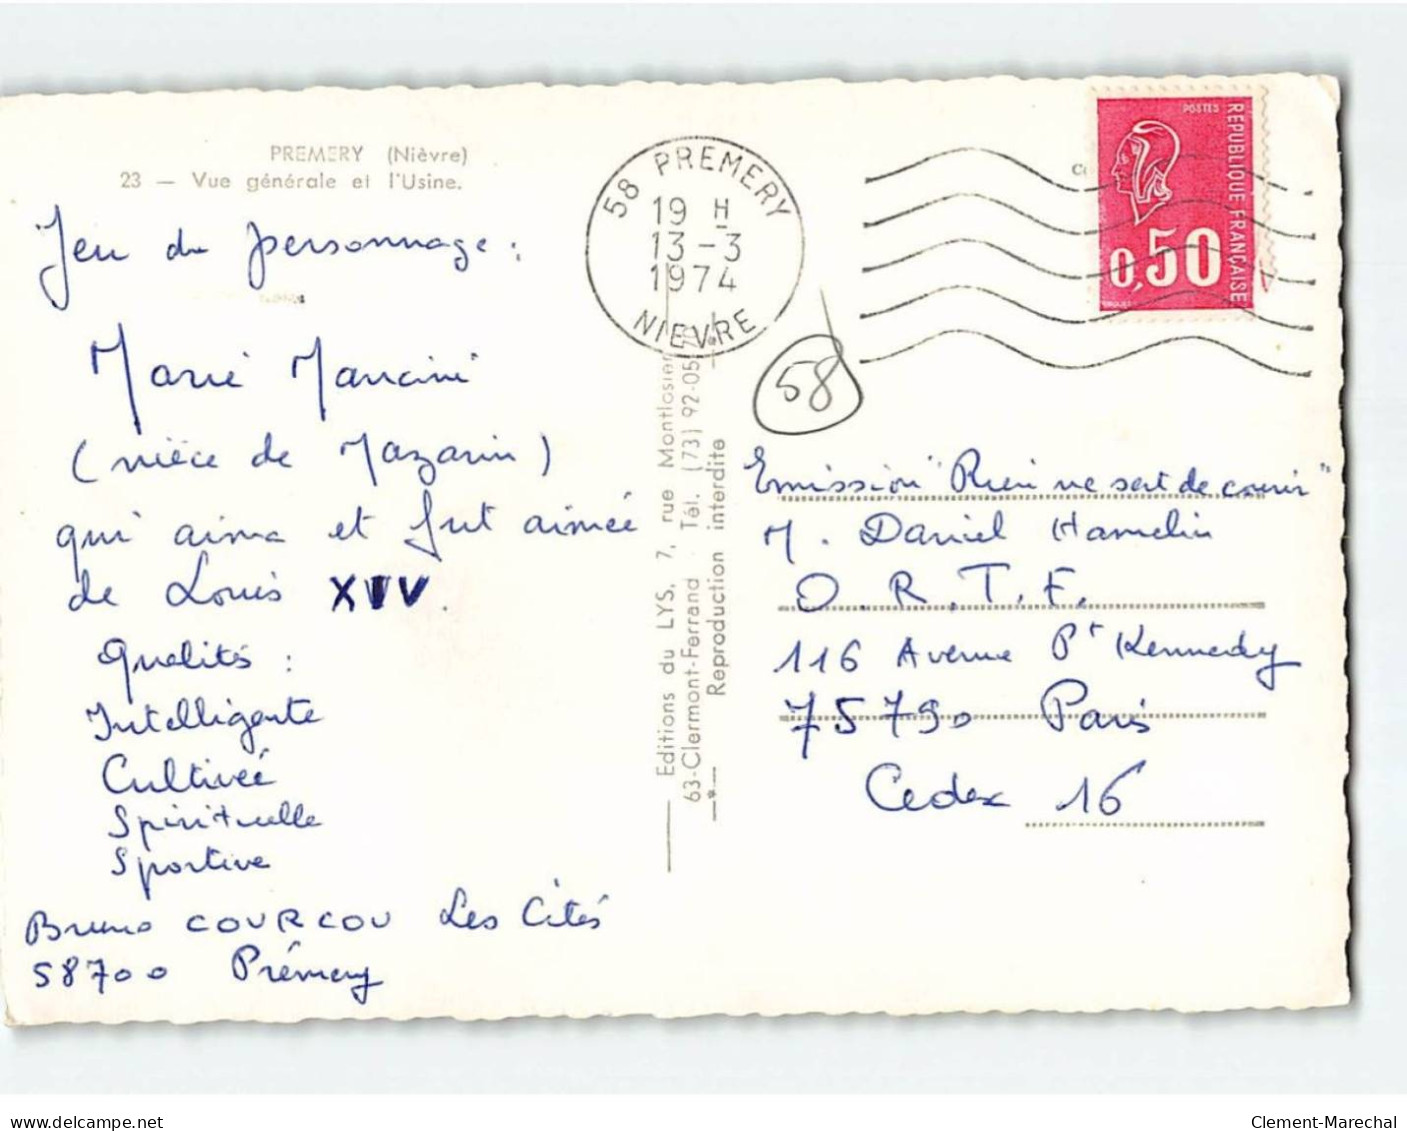 PREMERY (Nièvre)
23 — Vue générale et l'Usine.
Jeu du personnage :
Marie Mancini
(nièce de Mazarin)
qui aima et fut aimée
de Louis XIV.
Qualités :
Intelligente
Cultivée
Spirituelle
Sportive
Bruno COURCOU Les Cités
58700 Prémery
58 PREMERY
19 H
13-3
1974
NIEVRE
58
Editions du LYS, 7, rue Montlosier
63-Clermont-Ferrand Tél. (73) 92-05
Reproduction interdite
POSTES
REPUBLIQUE FRANÇAISE
0,50
Emission "Rien ne sert de courir"
M. Daniel Hamelin
O.R.T.F.
116 Avenue Pt Kennedy
75790 Paris
Cedex 16
delcampe.net
Clement-Marechal